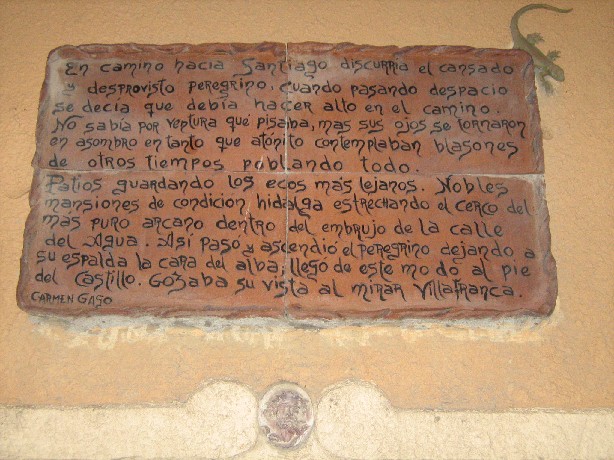 En camino hacia Santiago discurria el cansado
y desprovisto peregrino, cuando pasando despacio
se decía que debía hacer alto en el camino.
No sabía por ventura que pisaba, mas sus ojos se tornaron
en asombro en tanto que atónito contemplaban blasones
de otros tiempos poblando todo.
Patios guardando los ecos más lejanos. Nobles
mansiones de condicion hidalga estrechando el cerco del
más puro arcano dentro del embrujo de la calle
del Agua. Así paso y ascendió el peregrino dejando a
su espalda la cara del alba, llegó de este modo al pie
del Castillo. Gozaba su vista al mirar Villafranca.
CARMEN GAGO